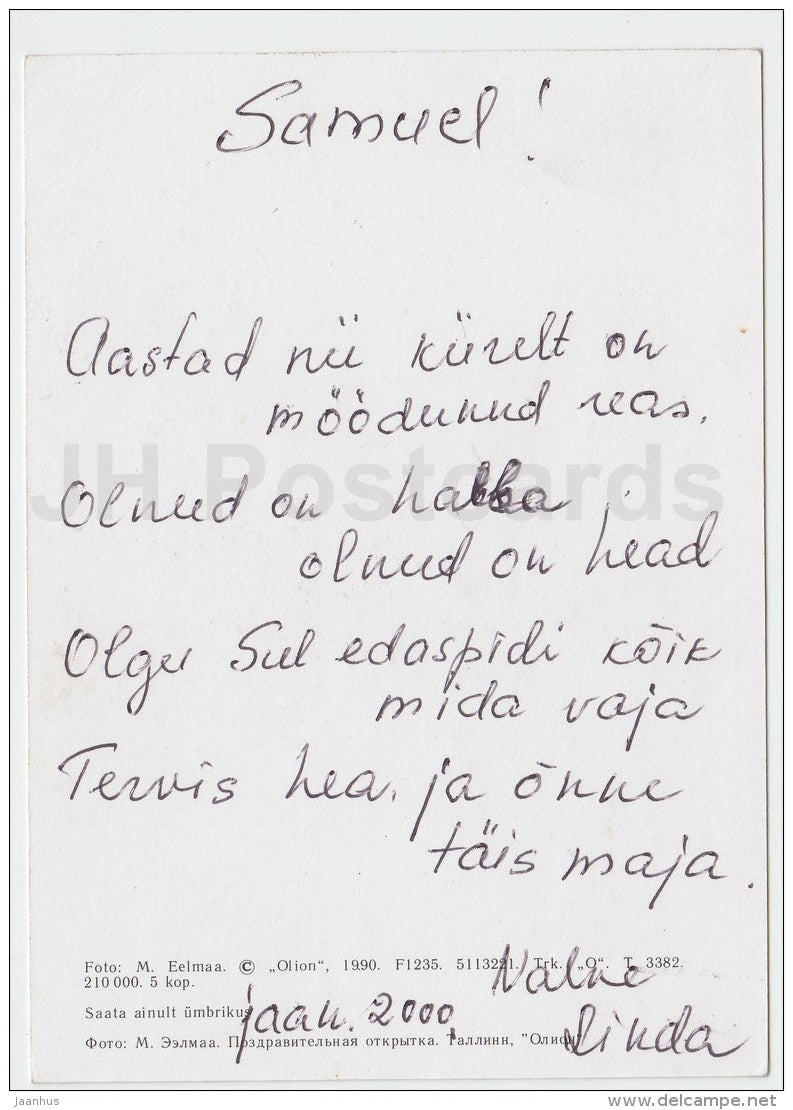 Samuel!
Aastad nii kiirelt on
möödunud reas.
Olnud on halba
olnud on head
Olgu Sul edaspidi kõik
mida vaja
Tervis hea ja õnne
täis maja.
Foto: M. Eelmaa. © „Olion“, 1990. F1235. 5113221. Trk. „O“. T. 3382.
210 000. 5 kop.
Malne
Saata ainult ümbrikus
jaan. 2000
Linda
Фото: М. Ээлмаа. Поздравительная открытка. Таллинн, "Олион"
JH Postcards
jaanhus
www.delcampe.net